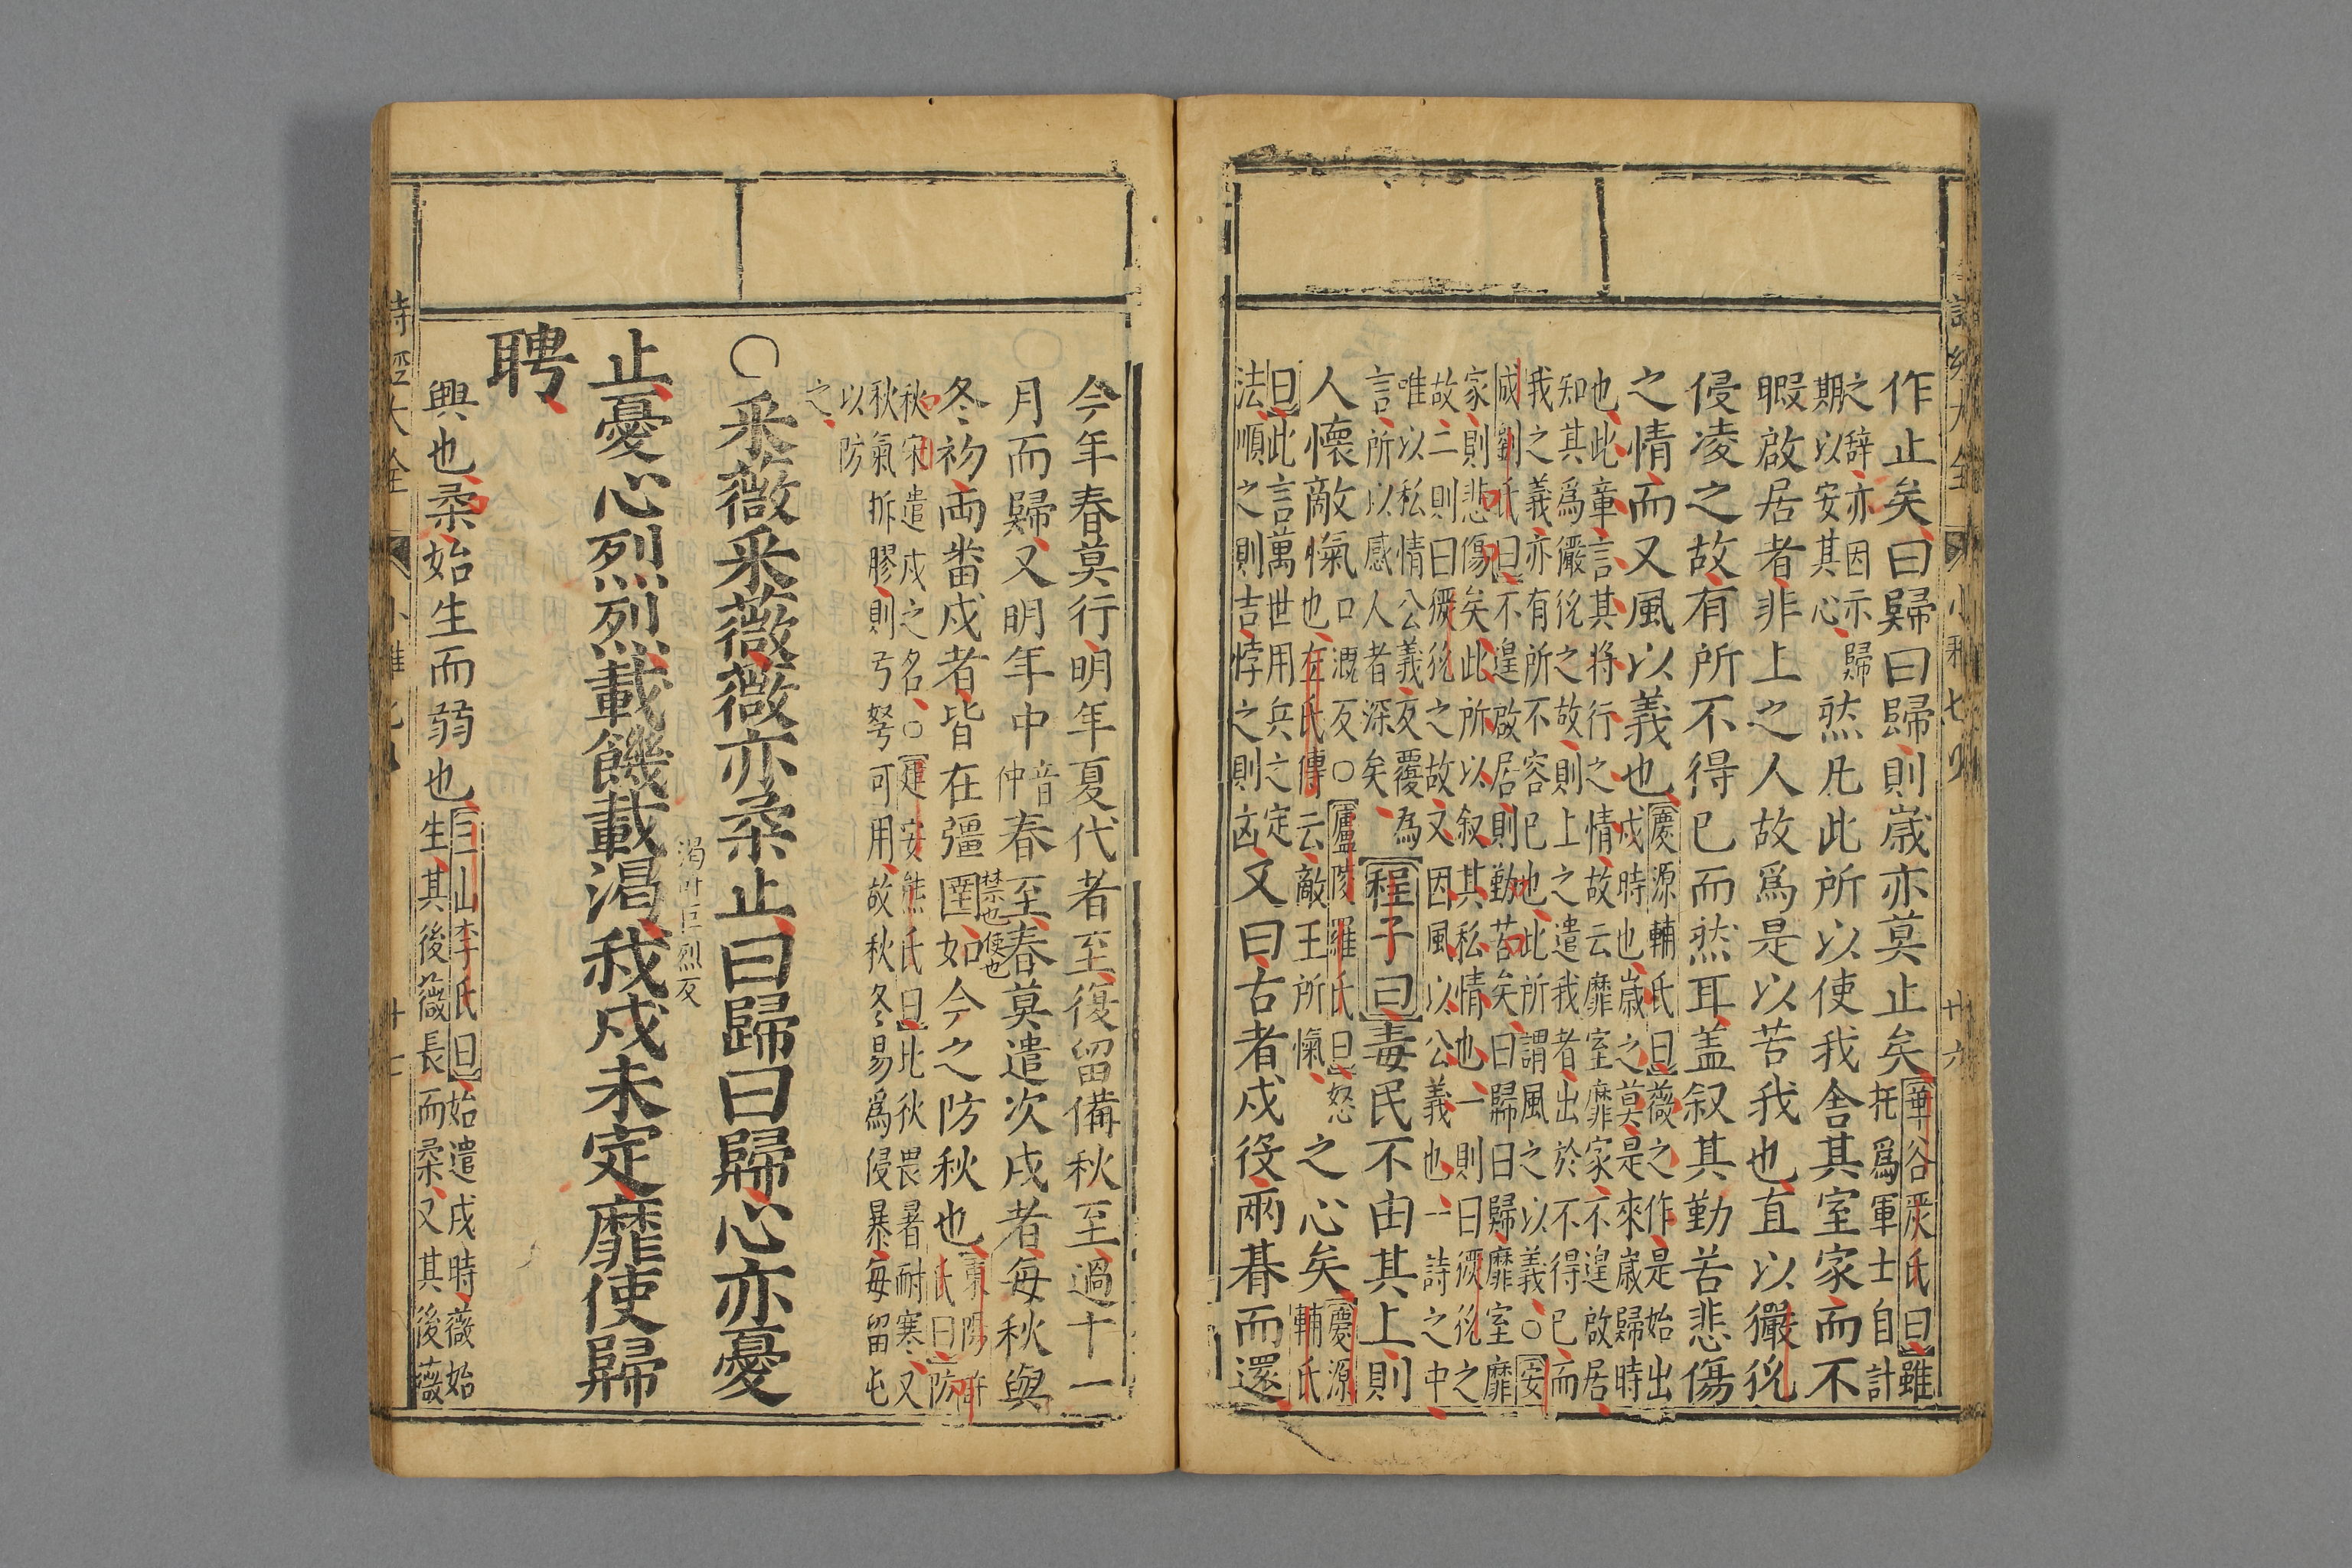 作止矣曰歸曰歸則歲亦莫止矣華谷嚴氏曰雖
托爲軍士自計
之辭亦因示歸
期以安其心
然凡此所以使我舍其室家而不
暇啟居者非上之人故爲是以苦我也直以玁狁
侵凌之故有所不得已而然耳盖叙其勤苦悲傷
之情而又風以義也慶源輔氏曰薇之作是始出
戍時也歲之莫是來歲歸時
也此章言其將行之情故云靡室靡家不遑啟居
知其爲玁狁之故則上之遣我者出於不得已而
我之義亦有所不容已也此所謂風之以義○安
成劉氏曰不遑啟居則勤苦矣曰歸曰歸靡室靡
家則悲傷矣此所以叙其私情也一則曰玁狁之
故二則曰玁狁之故又因風以公義也一詩之中
唯以私情公義反覆為
言所以感人者深矣
程子曰毒民不由其上則
人懷敵愾口溉反○廬陵羅氏曰怒
也左氏傳云敵王所愾
之心矣慶源
輔氏
曰此言萬世用兵之定
法順之則吉悖之則凶
又曰古者戍役兩朞而還
詩經大全 小雅七 卄六
今年春莫行明年夏代者至復留備秋至過十一
月而歸又明年中音仲春至春莫遣次戍者每秋與
冬初兩番戍者皆在疆圉禁也如今之防秋也東陽許
氏曰防
秋宋遣戍之名○建安熊氏曰北狄畏暑耐寒又
秋氣折膠則弓弩可用故秋冬易爲侵暴每留屯
以防
之
○采薇采薇薇亦柔止曰歸曰歸心亦憂
止憂心烈烈載饑載渴叶巨烈反我戍未定靡使歸
聘
興也柔始生而弱也白山李氏曰始遣戍時薇始
生其後薇長而柔又其後薇
詩經大全 小雅 卄七